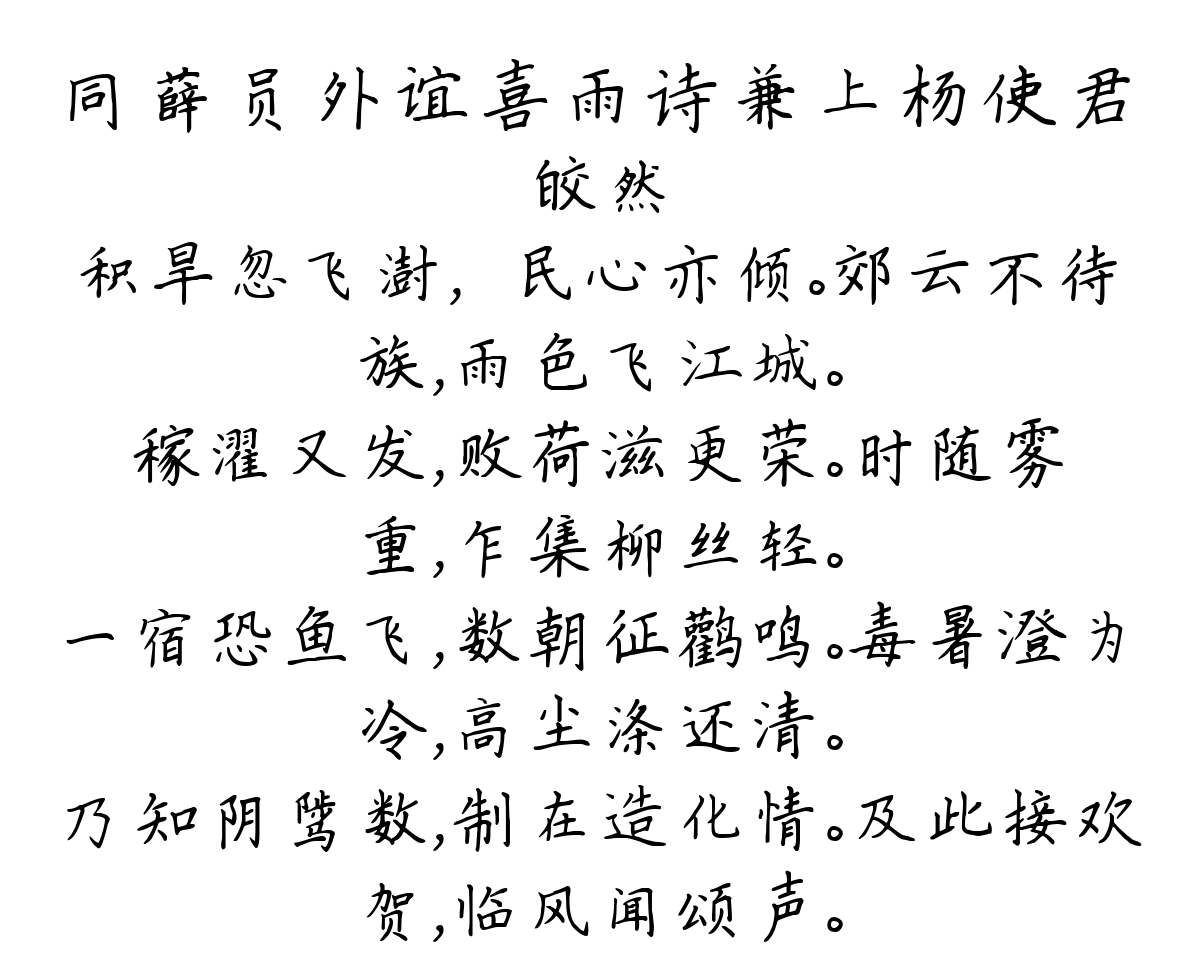 同薛员外谊喜雨诗兼上杨使君
皎然
积旱忽飞澍，民心亦倾。郊云不待
族,雨色飞江城。
稼濯又发,败荷滋更荣。时随雾
重,乍集柳丝轻。
一宿恐鱼飞,数朝征鹳鸣。毒暑澄为
冷,高尘涤还清。
乃知阴骘数,制在造化情。及此接欢
贺,临风闻颂声。